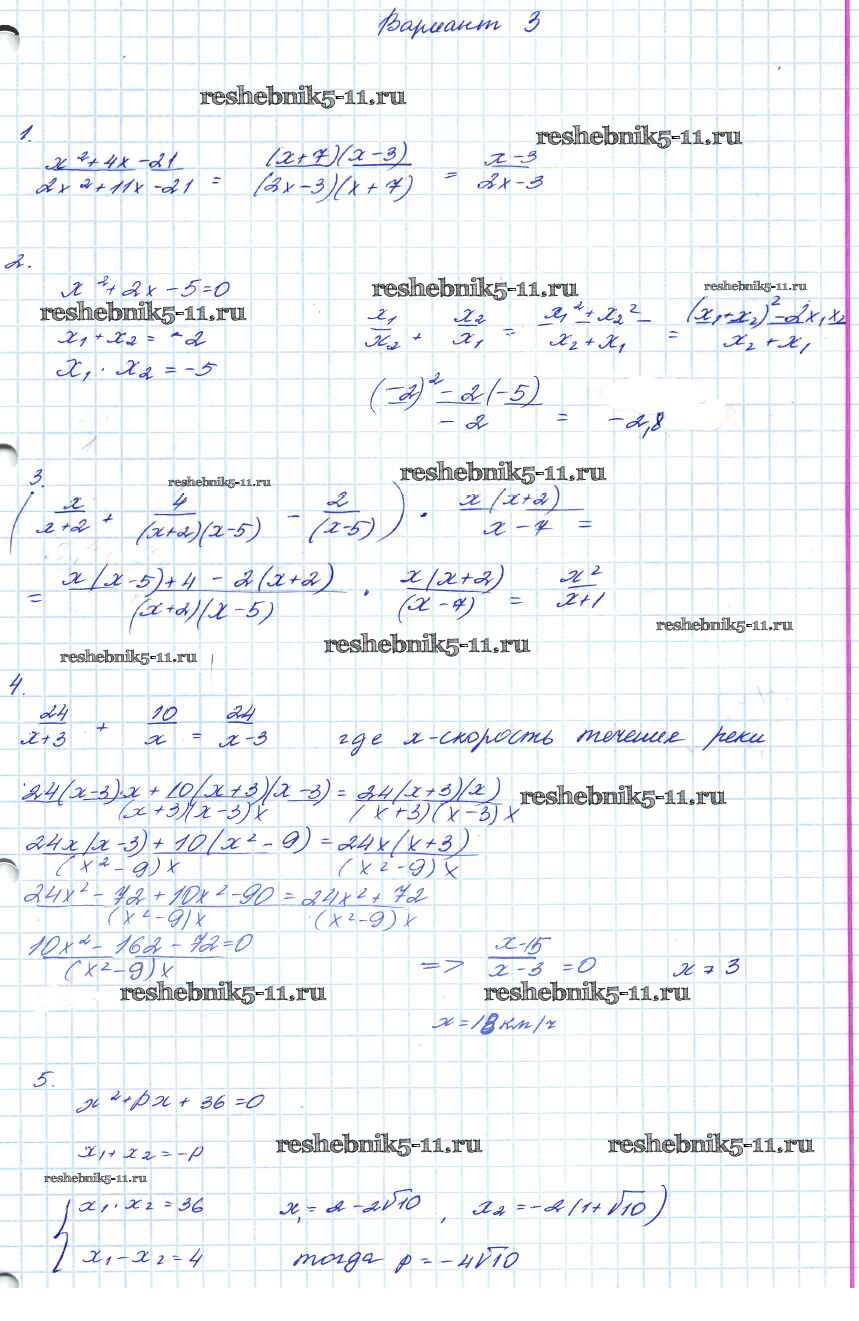 Вариант 3
reshebnik5-11.ru
1.
reshebnik5-11.ru
(x²+4x-21)/(2x²+11x-21) = ((x+7)(x-3))/((2x-3)(x+7)) = (x-3)/(2x-3)
2.
x²+2x-5=0
reshebnik5-11.ru
reshebnik5-11.ru
reshebnik5-11.ru
x₁+x₂=-2
x₁/x₂ + x₂/x₁ = (x₁²+x₂²)/(x₂+x₁) = ((x₁+x₂)²-2x₁x₂)/(x₂+x₁)
x₁·x₂=-5
((-2)²-2(-5))/(-2) = -2,8
3.
reshebnik5-11.ru
reshebnik5-11.ru
(x/(x+2) + 4/((x+2)(x-5)) - 2/(x-5)) · (x(x+2))/(x-7) =
= (x(x-5)+4-2(x+2))/((x+2)(x-5)) · (x(x+2))/(x-7) = x²/(x+1)
reshebnik5-11.ru
reshebnik5-11.ru
reshebnik5-11.ru
4.
24/(x+3) + 10/x = 24/(x-3) где x-скорость течения реки
(24(x-3)x+10(x+3)(x-3))/((x+3)(x-3)x) = (24(x+3)(x))/((x+3)(x-3)x)
reshebnik5-11.ru
(24x(x-3)+10(x²-9))/((x²-9)x) = (24x(x+3))/((x²-9)x)
(24x²-72+10x²-90)/((x²-9)x) = (24x²+72)/((x²-9)x)
(10x²-162-72)/((x²-9)x)=0 => (x-15)/(x-3)=0 x≠3
reshebnik5-11.ru
reshebnik5-11.ru
x=18км/ч
5.
x²+px+36=0
x₁+x₂=-p
reshebnik5-11.ru
reshebnik5-11.ru
reshebnik5-11.ru
{x₁·x₂=36 x₁=2-2√10, x₂=-2(1+√10)
x₁-x₂=4 тогда p=-4√10